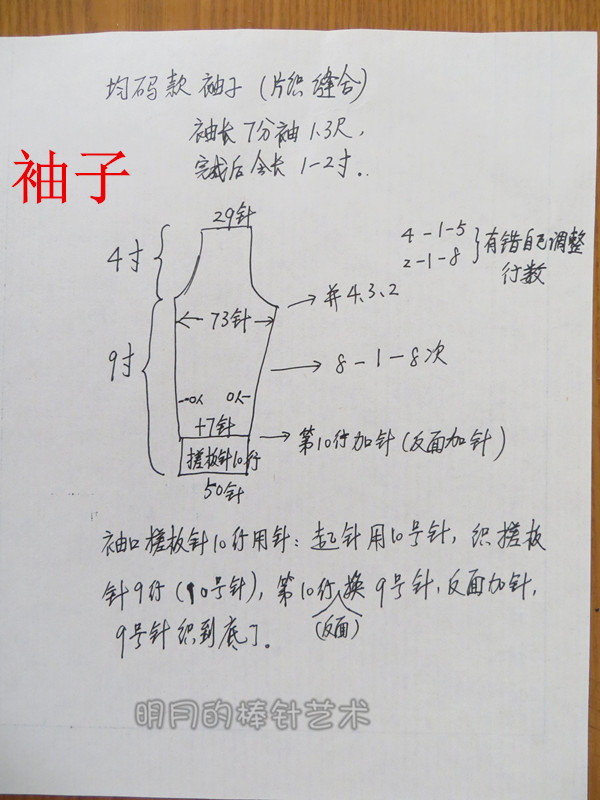 均码款袖子(片织缝合)
袖长7分袖1.3尺,
完成后会长1-2寸..
袖子
29针
4寸
4-1-5
2-1-8
有错自己调整
行数
并4、3、2
73针
9寸
8-1-8次
+7针
第10行加针(反面加针)
搓板针10行
50针
袖口搓板针10行用针:起针用10号针,织搓板
针9行(10号针),第10行换9号针,反面加针,
(反面)
9号针织到底了。
明月的棒针艺术